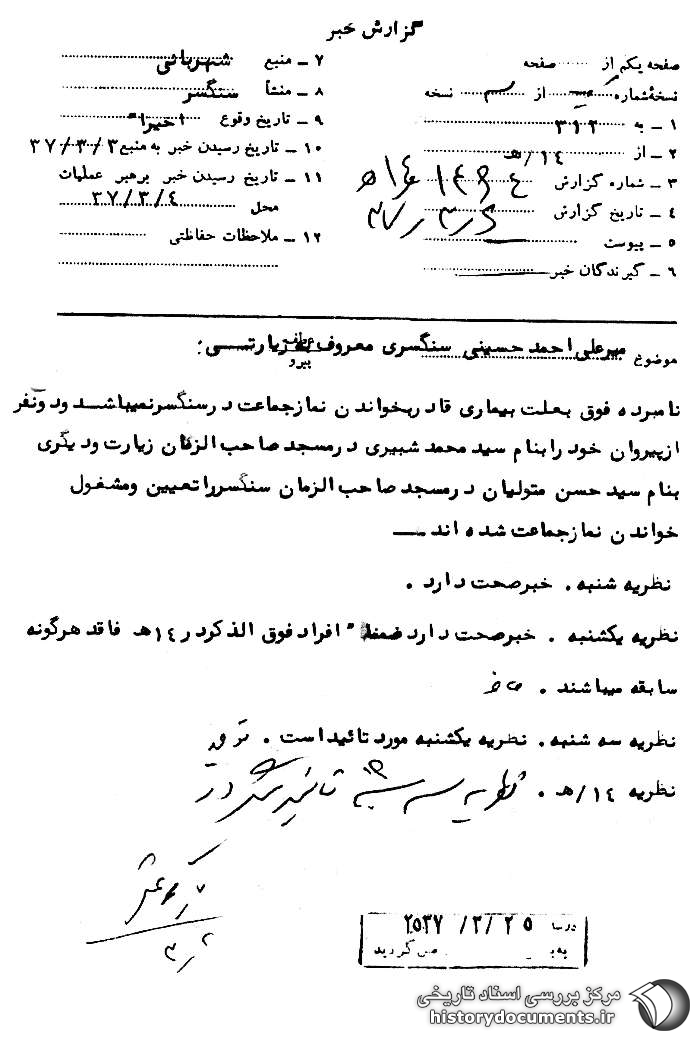 گزارش خبر
صفحه یکم از صفحه
نسخه شماره از نسخه
۱ ـ به ۳۱۲
۲ ـ از ۱۴/هـ
۳ ـ شماره گزارش
۴ ـ تاریخ گزارش
۵ ـ پیوست
۶ ـ گیرندگان خبر
۷ ـ منبع شهربانی
۸ ـ منشأ سنگسر
۹ ـ تاریخ وقوع اخیراً
۱۰ ـ تاریخ رسیدن خبر به منبع ۳۷/۳/۳
۱۱ ـ تاریخ رسیدن خبر برهبر عملیات
محل ۳۷/۳/۴
۱۲ ـ ملاحظات حفاظتی
موضوع میرعلی احمد حسینی سنگسری معروف
پیرو
نامبرده فوق بعلت بیماری قادربخواندن نمازجماعت درسنگسرنمیباشد ودونفر
ازپیروان خود رابنام سید محمد شبیری درمسجد صاحب الزمان زیارت ودیگری
بنام سید حسن متولیان درمسجد صاحب الزمان سنگسرراتعیین ومشغول
خواندن نمازجماعت شده اند
نظریه شنبه . خبرصحت دارد .
نظریه یکشنبه . خبرصحت دارد ضمناً افراد فوق الذکردر۱۴هـ فاقد هرگونه
سابقه میباشند .
نظریه سه شنبه . نظریه یکشنبه مورد تائیداست .
نظریه ۱۴/هـ . نظریه سه شنبه تائید میشود
۲۵۳۷ /۳/ ۲۵
گردید
مرکز بررسی اسناد تاریخی
historydocuments.ir